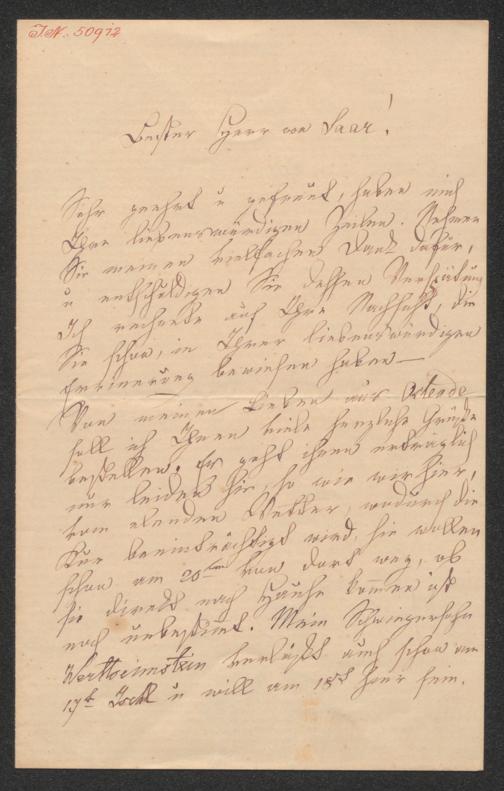 J.N. 50972
Bester Herr von Saar!
Sehr geehrt u gefreut, haben mich
Ihre liebenswürdigen Zeilen. Nehmen
Sie meinen vielfachen Dank dafür,
u entschuldigen Sie dessen Verspätung
Ich rechnete auf Ihre Nachsicht, die
Sie schon, in Ihrer liebenswürdigen
Erinnerung bewiesen haben —
Von meinen Lieben aus Ostende
soll ich Ihnen viele herzliche Grüße
bestellen. Es geht ihnen erträglich
nur leiden sie, so wie wir hier,
vom elenden Wetter, wodurch die
Kur beeinträchtigt wird, sie wollen
schon am 20ten von dort weg, ob
sie direkt nach Hause kommen ist
noch unbestimt. Mein Schwiegersohn
Wertheimstein verläßt auch schon am
17t Ischl u will am 18t hier sein.